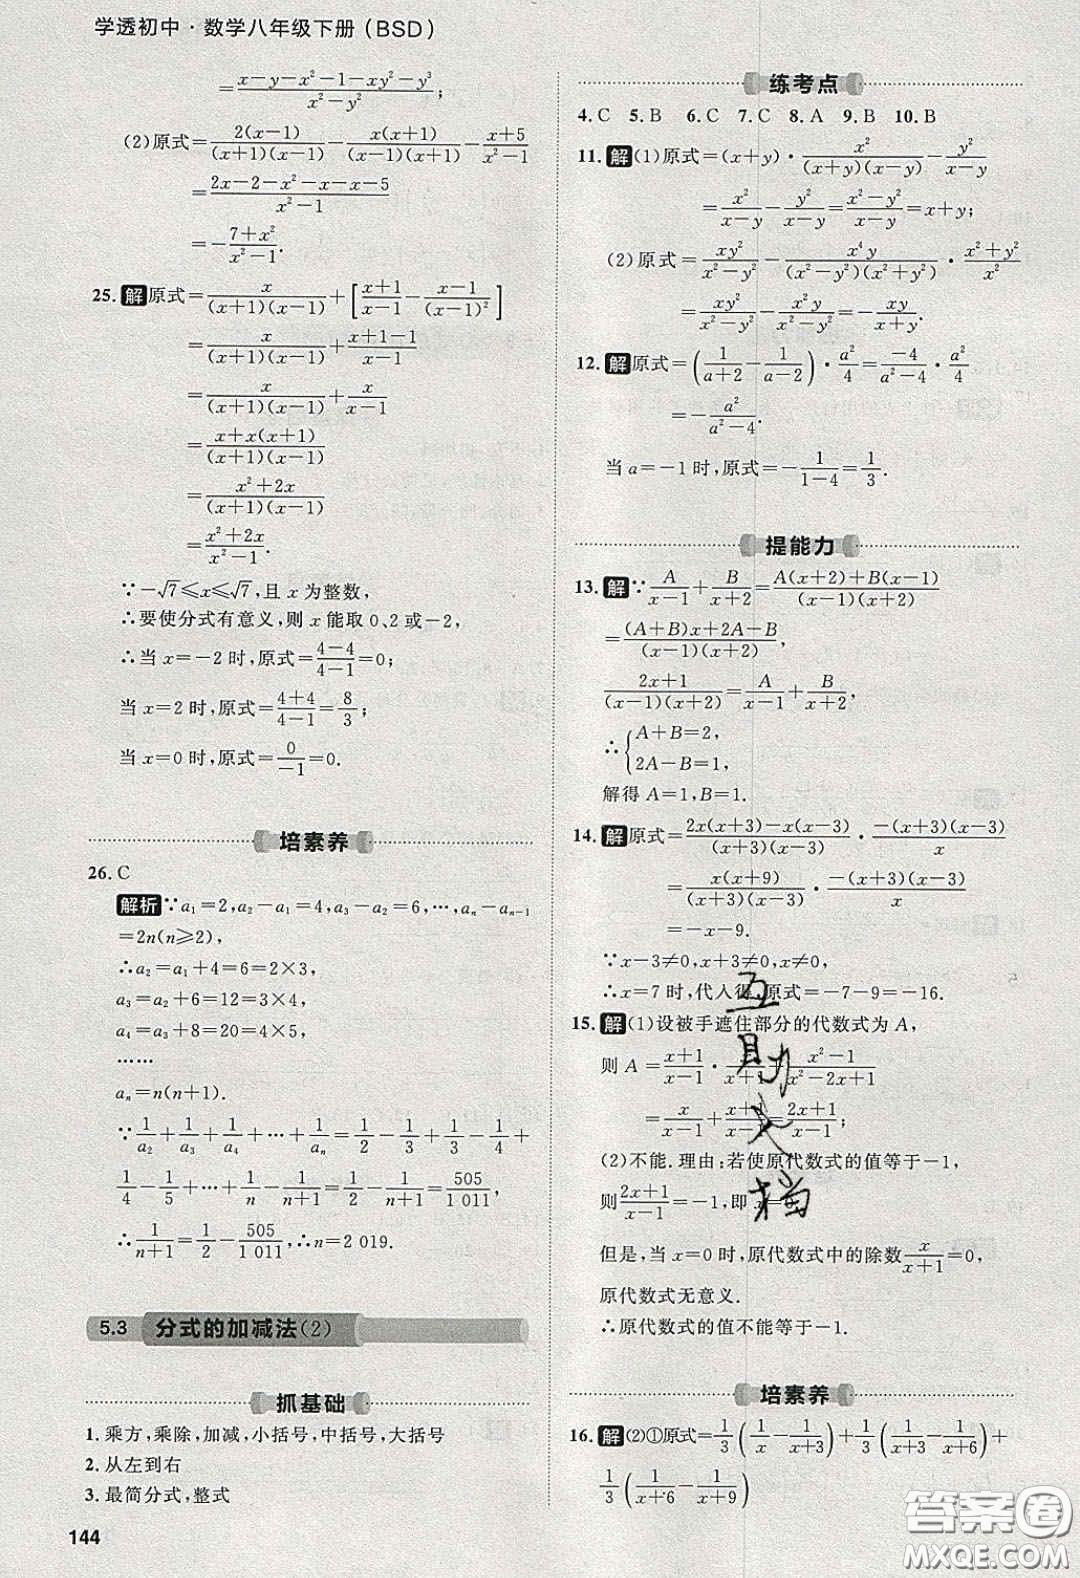 学透初中·数学八年级下册(BSD)
=\frac{x-y-x²-1-xy²-y³}{x²-y²};
(2)原式=\frac{2(x-1)}{(x+1)(x-1)}-\frac{x(x+1)}{(x-1)(x+1)}-\frac{x+5}{x²-1}
=\frac{2x-2-x²-x-x-5}{x²-1}
=-\frac{7+x²}{x²-1}.
25.解 原式=\frac{x}{(x+1)(x-1)}+[\frac{x+1}{x-1}-\frac{x-1}{(x-1)²}]
=\frac{x}{(x+1)(x-1)}+\frac{x+1-1}{x-1}
=\frac{x}{(x+1)(x-1)}+\frac{x}{x-1}
=\frac{x+x(x+1)}{(x+1)(x-1)}
=\frac{x²+2x}{(x+1)(x-1)}
=\frac{x²+2x}{x²-1}.
∵-√7≤x≤√7,且 x 为整数,
∴要使分式有意义,则 x 能取 0、2 或-2,
∴当 x=-2 时,原式=\frac{4-4}{4-1}=0;
当 x=2 时,原式=\frac{4+4}{4-1}=\frac{8}{3};
当 x=0 时,原式=\frac{0}{-1}=0.
培素养
26. C
解析 ∵a₁=2,a₂-a₁=4,a₃-a₂=6,…,aₙ-aₙ₋₁
=2n(n≥2),
∴a₂=a₁+4=6=2×3,
a₃=a₂+6=12=3×4,
a₄=a₃+8=20=4×5,
……
aₙ=n(n+1).
∵\frac{1}{a₂}+\frac{1}{a₃}+\frac{1}{a₄}+…+\frac{1}{aₙ}=\frac{1}{2}-\frac{1}{3}+\frac{1}{3}-\frac{1}{4}+
\frac{1}{4}-\frac{1}{5}+…+\frac{1}{n}-\frac{1}{n+1}=\frac{1}{2}-\frac{1}{n+1}=\frac{505}{1 011},
∴\frac{1}{n+1}=\frac{1}{2}-\frac{505}{1 011},∴n=2 019.
5.3 分式的加减法(2)
抓基础
1. 乘方,乘除,加减,小括号,中括号,大括号
2. 从左到右
3. 最简分式,整式
144
练考点
4. C 5. B 6. C 7. C 8. A 9. B 10. B
11.解 (1)原式=(x+y)·\frac{x²}{(x+y)(x-y)}-\frac{y²}{x-y}
=\frac{x²}{x-y}-\frac{y²}{x-y}=\frac{x²-y²}{x-y}=x+y;
(2)原式=\frac{xy²}{x²-y²}-\frac{x⁴y}{(x²-y²)(x²+y²)}·\frac{x²+y²}{x²}
=\frac{xy²}{x²-y²}-\frac{x²y}{x²-y²}=-\frac{xy}{x+y}.
12.解 原式=(\frac{1}{a+2}-\frac{1}{a-2})·\frac{a²}{4}=\frac{-4}{a²-4}·\frac{a²}{4}
=-\frac{a²}{a²-4}.
当 a=-1 时,原式=-\frac{1}{1-4}=\frac{1}{3}.
提能力
13.解 ∵\frac{A}{x-1}+\frac{B}{x+2}=\frac{A(x+2)+B(x-1)}{(x-1)(x+2)}
=\frac{(A+B)x+2A-B}{(x-1)(x+2)},
\frac{2x+1}{(x-1)(x+2)}=\frac{A}{x-1}+\frac{B}{x+2},
∴{A+B=2,
2A-B=1,
解得 A=1,B=1.
14.解 原式=\frac{2x(x+3)-x(x-3)}{(x+3)(x-3)}·\frac{-(x+3)(x-3)}{x}
=\frac{x(x+9)}{(x+3)(x-3)}·\frac{-(x+3)(x-3)}{x}
=-x-9.
∵x-3≠0,x+3≠0,x≠0,
∴x=7 时,代入得,原式=-7-9=-16.
15.解 (1)设被手遮住部分的代数式为 A,
则 A=\frac{x+1}{x-1}·\frac{x}{x+1}+\frac{x²-1}{x²-2x+1}
=\frac{x}{x-1}+\frac{x+1}{x-1}=\frac{2x+1}{x-1};
(2)不能.理由:若使原代数式的值等于-1,
则\frac{2x+1}{x-1}=-1,即 x=0,
但是,当 x=0 时,原代数式中的除数\frac{x}{x+1}=0,
原代数式无意义.
∴原代数式的值不能等于-1.
培素养
16.解 (2)①原式=\frac{1}{3}(\frac{1}{x}-\frac{1}{x+3})+\frac{1}{3}(\frac{1}{x+3}-\frac{1}{x+6})+
\frac{1}{3}(\frac{1}{x+6}-\frac{1}{x+9})
互助文档
答案圈
MXQE.COM